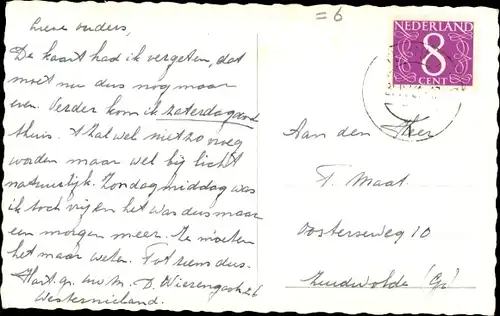 = 6
NEDERLAND
8
CENT
Lieve ouders,
De kaart had ik vergeten, dat
moet nu dus nog maar
even. Verder kom ik zaterdagavond
thuis. 't Zal wel niet zo vroeg
worden maar wel bij licht
natuurlijk. Zondagmiddag was
ik toch vrij en het was dus maar
een morgen meer. Ze moeten
het maar weten. Tot ziens dus.
Hart. gr. uw M. D. Wierengastr. 26
Westernieland.
Aan den Heer
F. Maat
Oosterseweg 10
Zuidwolde (Gr)